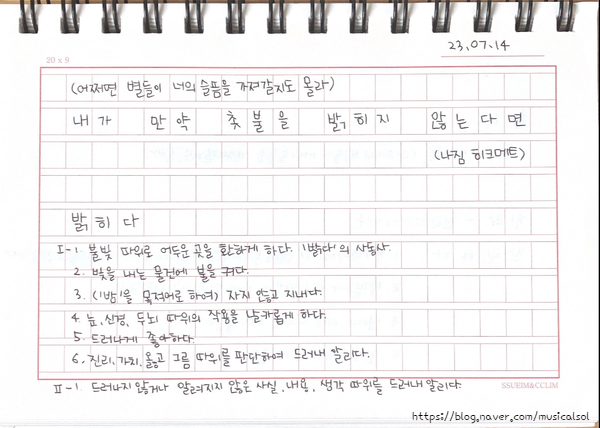 23.07.14
20 x 9
(어쩌면 별들이 너의 슬픔을 가져갈지도 몰라)
내가 만약 촛불을 밝히지 않는다면
(나짐 히크메트)
밝히다
I-1. 불빛 따위로 어두운 곳을 환하게 하다. '밝다'의 사동사.
2. 빛을 내는 물건에 불을 켜다.
3. ('밤'을 목적어로 하여) 자지 않고 지내다.
4. 눈, 신경, 두뇌 따위의 작용을 날카롭게 하다.
5. 드러나게 좋아하다.
6. 진리, 가치, 옳고 그름 따위를 판단하여 드러내 알리다.
II-1. 드러나지 않거나 알려지지 않은 사실, 내용, 생각 따위를 드러내 알리다.
SSUEIM&CCLIM
https://blog.naver.com/musicalsol